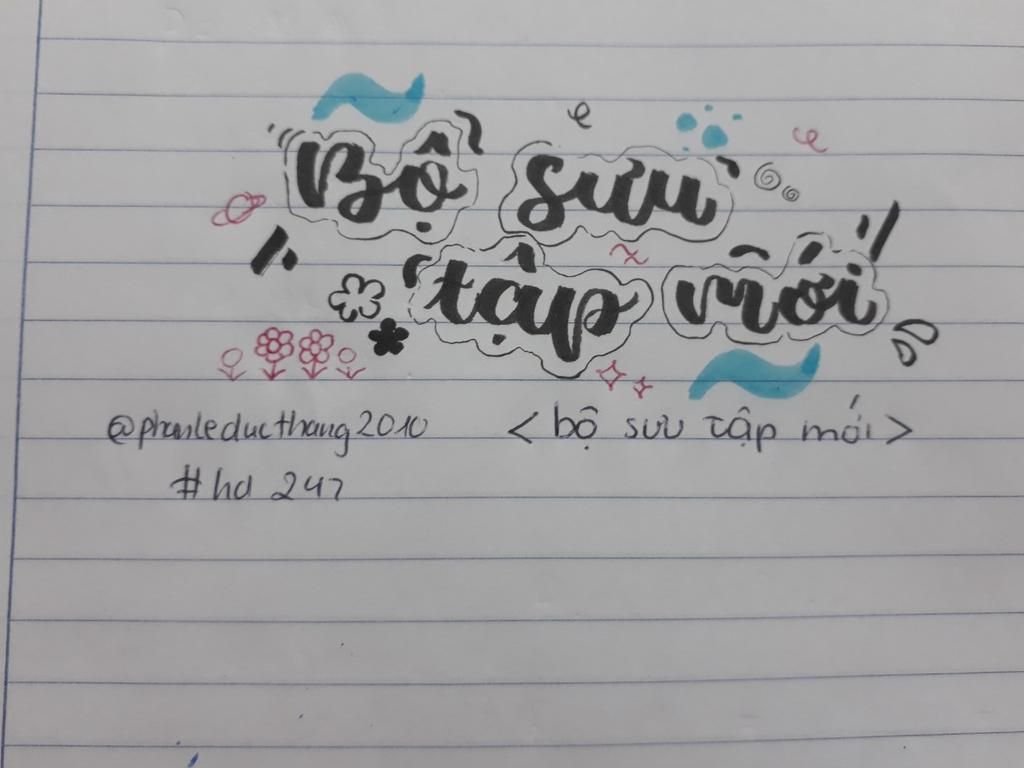 Bộ sưu
tập mới
@phanleducthang2010 <bộ sưu tập mới>
#hd 247